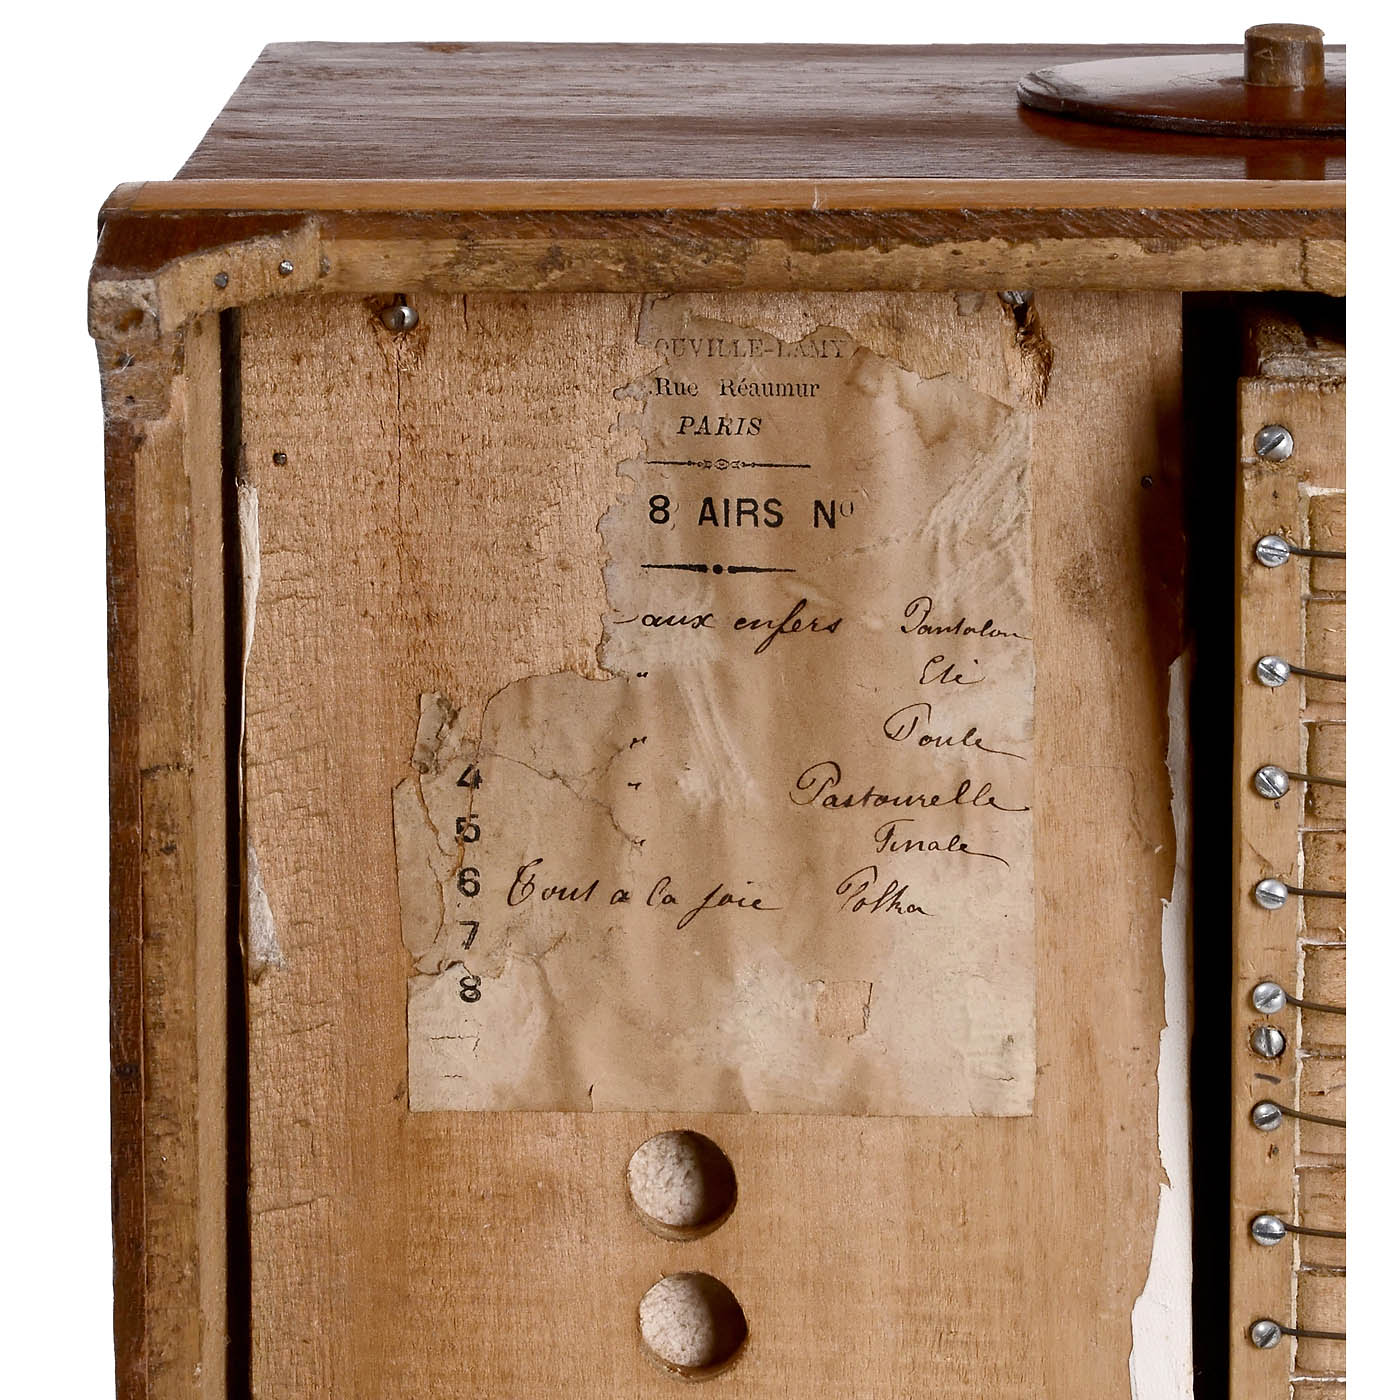 OUVILLE-LAMY
Rue Réaumur
PARIS
8 AIRS Nº
aux enfers Pantalon
" Eté
" Poule
4 " Pastourelle
5 " Finale
6 Tout a la joie Polka
7
8